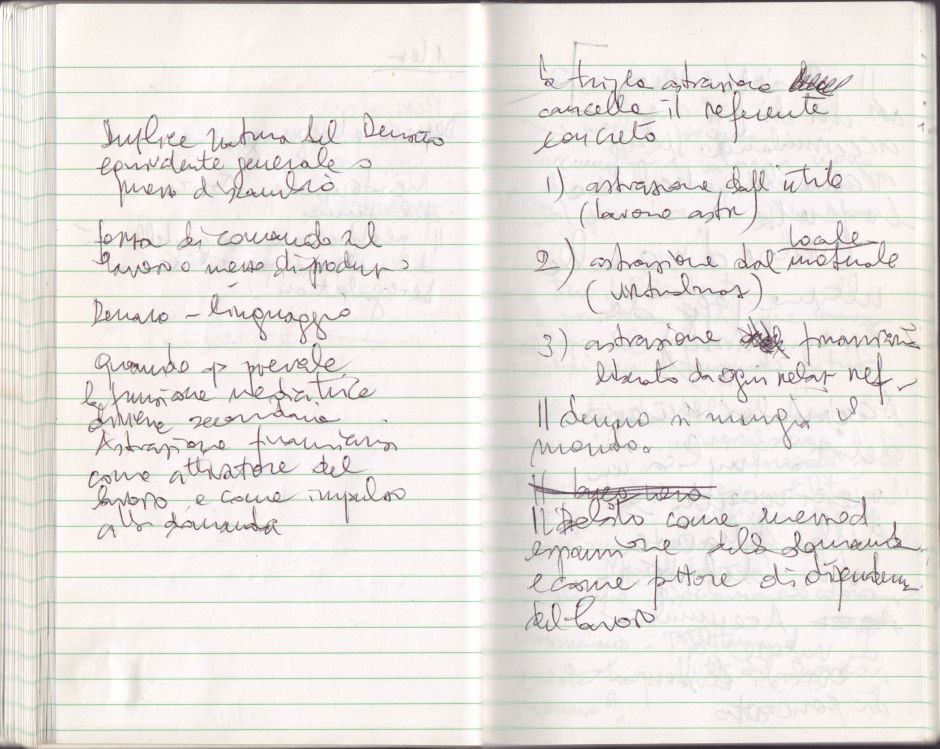 Duplice natura del Denaro
equivalente generale o
mezzo di scambio
forza di comando sul
lavoro o mezzo di produz
Denaro - linguaggio
quando prevale
la funzione mediatrice
diviene secondaria
Astrazione finanziaria
come attivatore del
lavoro e come impulso
alla domanda
la tripla astrazione
cancella il referente
concreto
1) astrazione dall'utile
(lavoro astr)
locale
2) astrazione dal materiale
3) astrazione finanziaria
liberata da ogni relaz ref
Il denaro si mangia il
mondo.
Il buco nero
Il Debito come
espansione della domanda
e come fattore di dipendenza
del lavoro